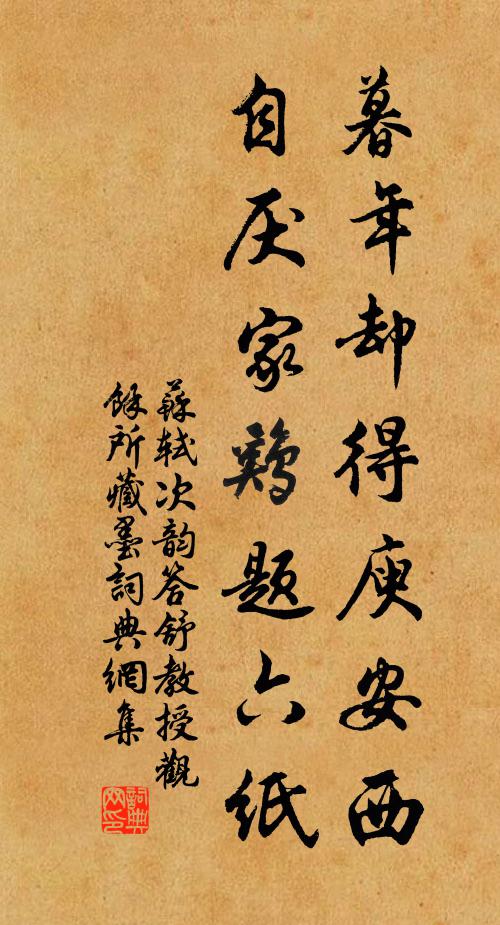 暮年却得庾安西
自厌家鷄题六纸
蘇轼次韵答舒教授觀
餘所藏墨詞典網集
詞典網印